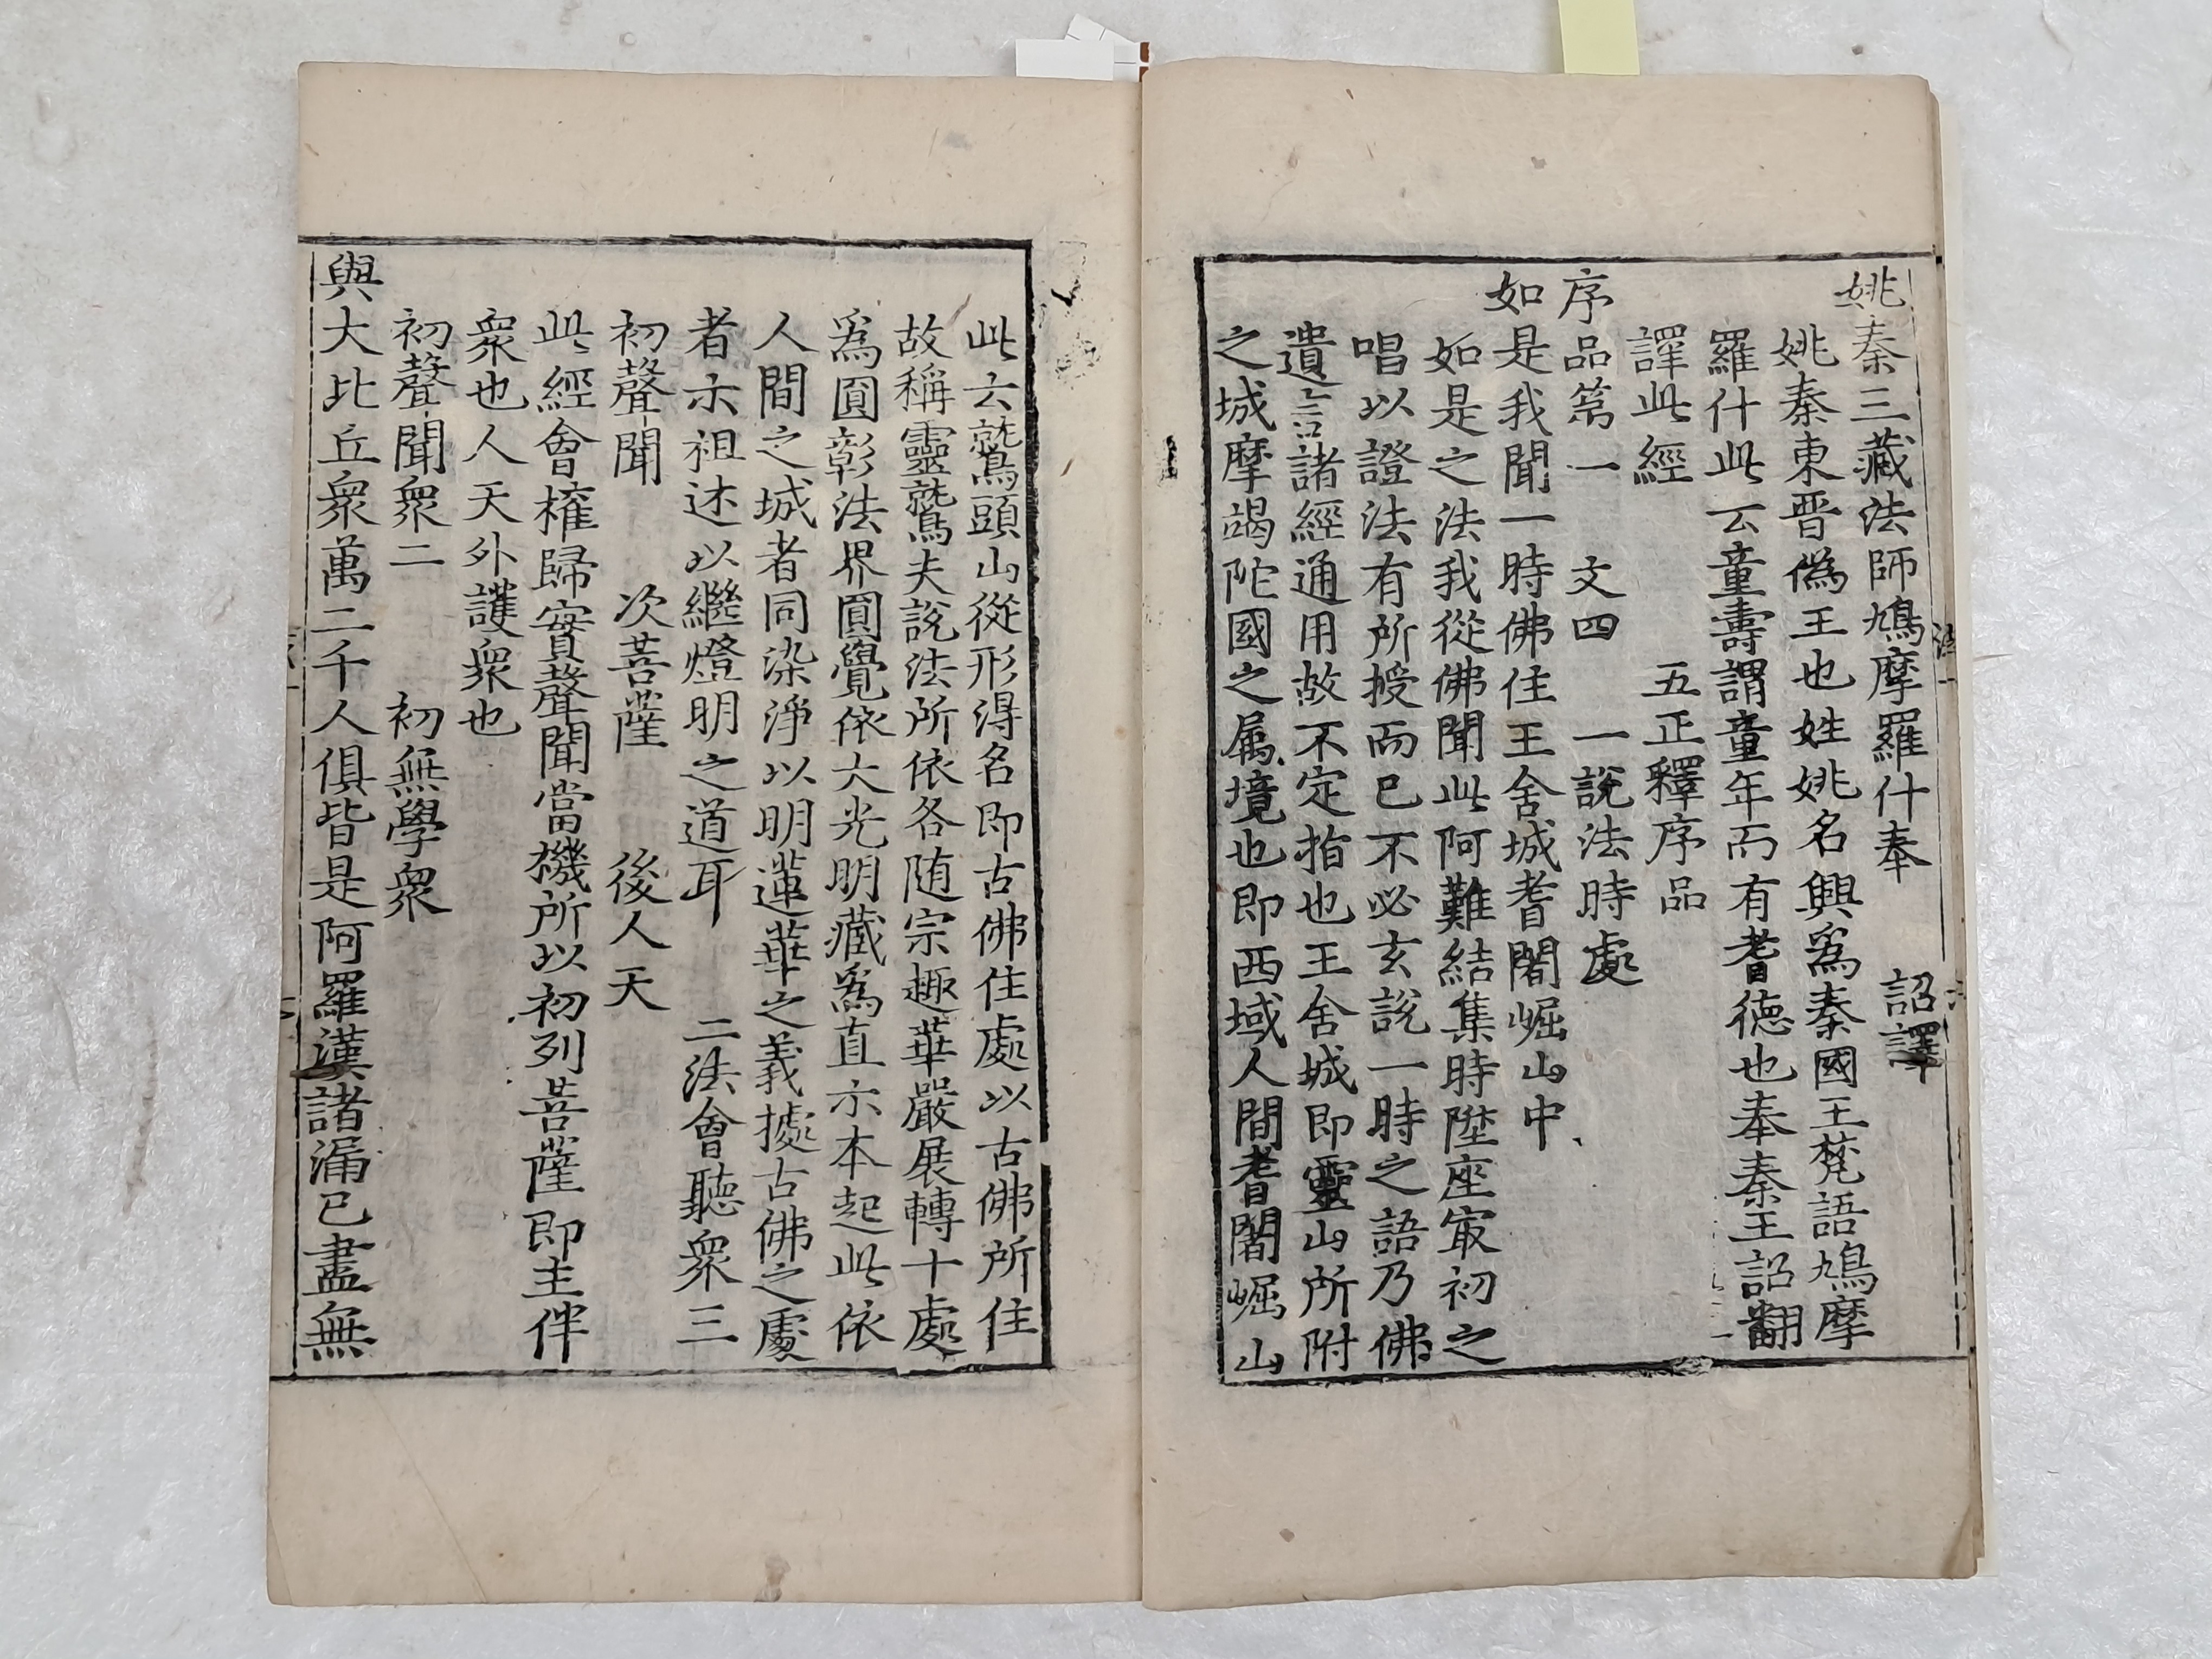 姚秦三藏法師鳩摩羅什奉　詔譯
姚秦東晋僞王也姓姚名興爲秦國王梵語鳩摩
羅什此云童壽謂童年而有耆德也奉秦王詔翻
譯此經　五正釋序品
序品第一　文四　一說法時處
如是我聞一時佛住王舍城耆闍崛山中
如是之法我從佛聞此阿難結集時陞座㝡初之
唱以證法有所授而已不必玄說一時之語乃佛
遺言諸經通用故不定指也王舍城即靈山所附
之城摩竭陀國之属境也即西域人間耆闍崛山
此云鷲頭山從形得名即古佛住處以古佛所住
故稱靈鷲夫說法所依各随宗趣華嚴展轉十處
爲圓彰法界圓覺依大光明藏爲直示本起此依
人間之城者同染淨以明蓮華之義據古佛之處
者示祖述以繼燈明之道耳　二法會聽衆三
初聲聞　次菩薩　後人天
此經會權歸實聲聞當機所以初列菩薩即主伴
衆也人天外護衆也
初聲聞衆二　初無學衆
與大比丘衆萬二千人俱皆是阿羅漢諸漏已盡無